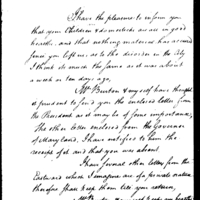 I have the pleasure to inform you
that your Children & domesticks are all in good
health, and that nothing material has occured
since you left us; as to the disorder in the City
I think it much the same as it was about
a week or ten days ago,
Mr Burton & myself have thought
it prudent to send you the enclosed letter from
the President as it may be of some importance,
The other letter enclosed from the Governor
of Maryland, I have written to him the
receipt of it and that you was absent.
I have several other letters from the
Eastward which I imagine are of a private nature
therefore shall keep them till you return,